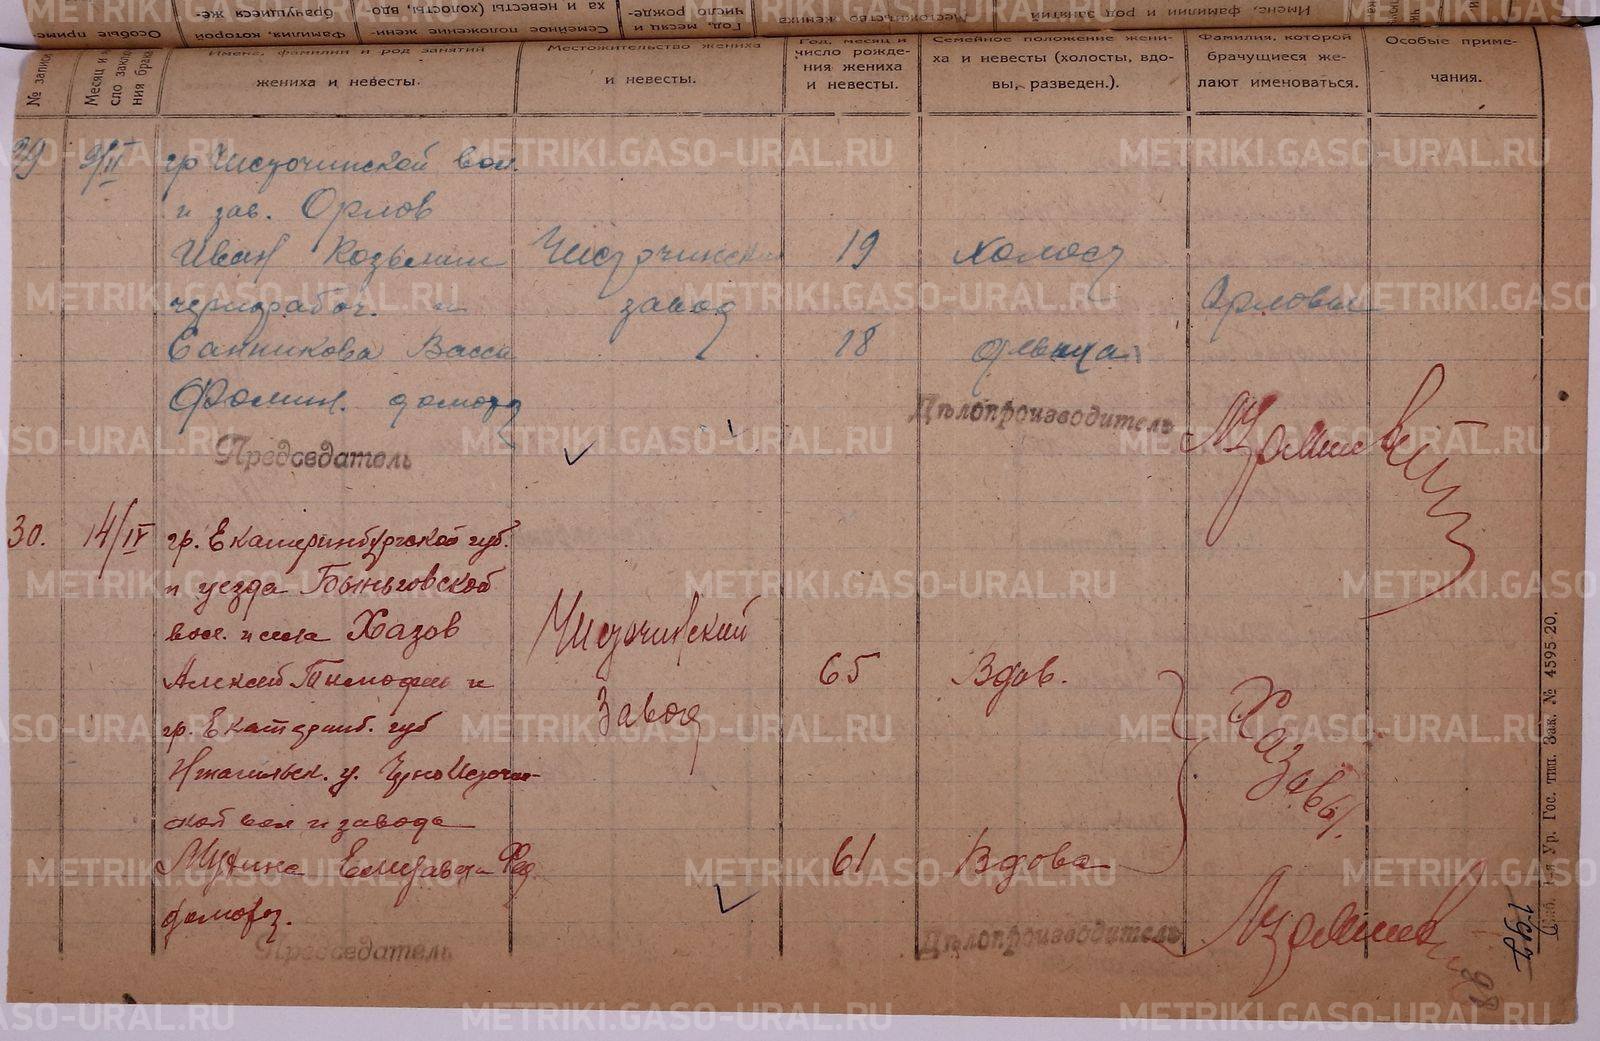 № запис
Месяц и
сло заклю
ния брак
Имена, фамилии и род занятий
жениха и невесты.
Местожительство жениха
и невесты.
Год, месяц и
число рожде-
ния жениха
и невесты.
Семейное положение жени-
ха и невесты (холосты, вдо-
вы, разведен.).
Фамилия, которой
брачущиеся же-
лают именоваться.
Особые приме-
чания.
29
9/II
гр Чисточинской вол.
и зав. Орлов
Иван Козьмин
чернорабоч. и
Санникова Васса
Фомин. домохоз
Чисточинский
завод
19
18
холост
девица
Орловы
Председатель
Дѣлопроизводитель
30.
14/IV
гр. Екатеринбургской губ.
и уезда Быньговской
вол. и села Хазов
Алексей Тимофеев и
гр. Екатеринб. губ
Нтагильск. у. Черно Источин-
ской вол и завода
Елизавета Фед
домохоз.
Чисточинский
Завод
65
61
Вдов.
Вдова
Хазовы.
Председатель
Дѣлопроизводитель
Ур. Гос. тип. Зак. № 4595-20.
METRIKI.GASO-URAL.RU